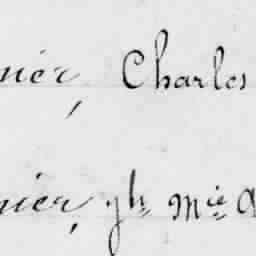 nier, Charles
nier, Jh Mie A